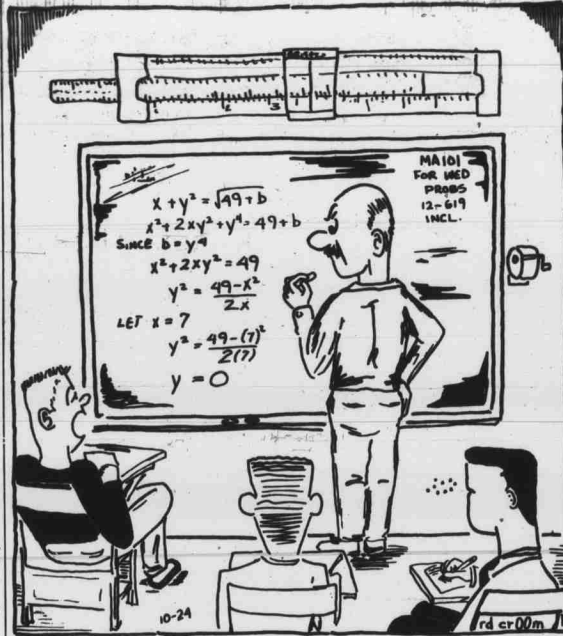 2 3
x + y² = √49 + b
x² + 2xy² + y⁴ = 49 + b
SINCE b = y⁴
x² + 2xy² = 49
y² = 49 - x² / 2x
LET x = 7
y² = 49 - (7)² / 2(7)
y = 0
MA101
FOR WED
PROBS
12-619
INCL.
10-24
rd cr00m